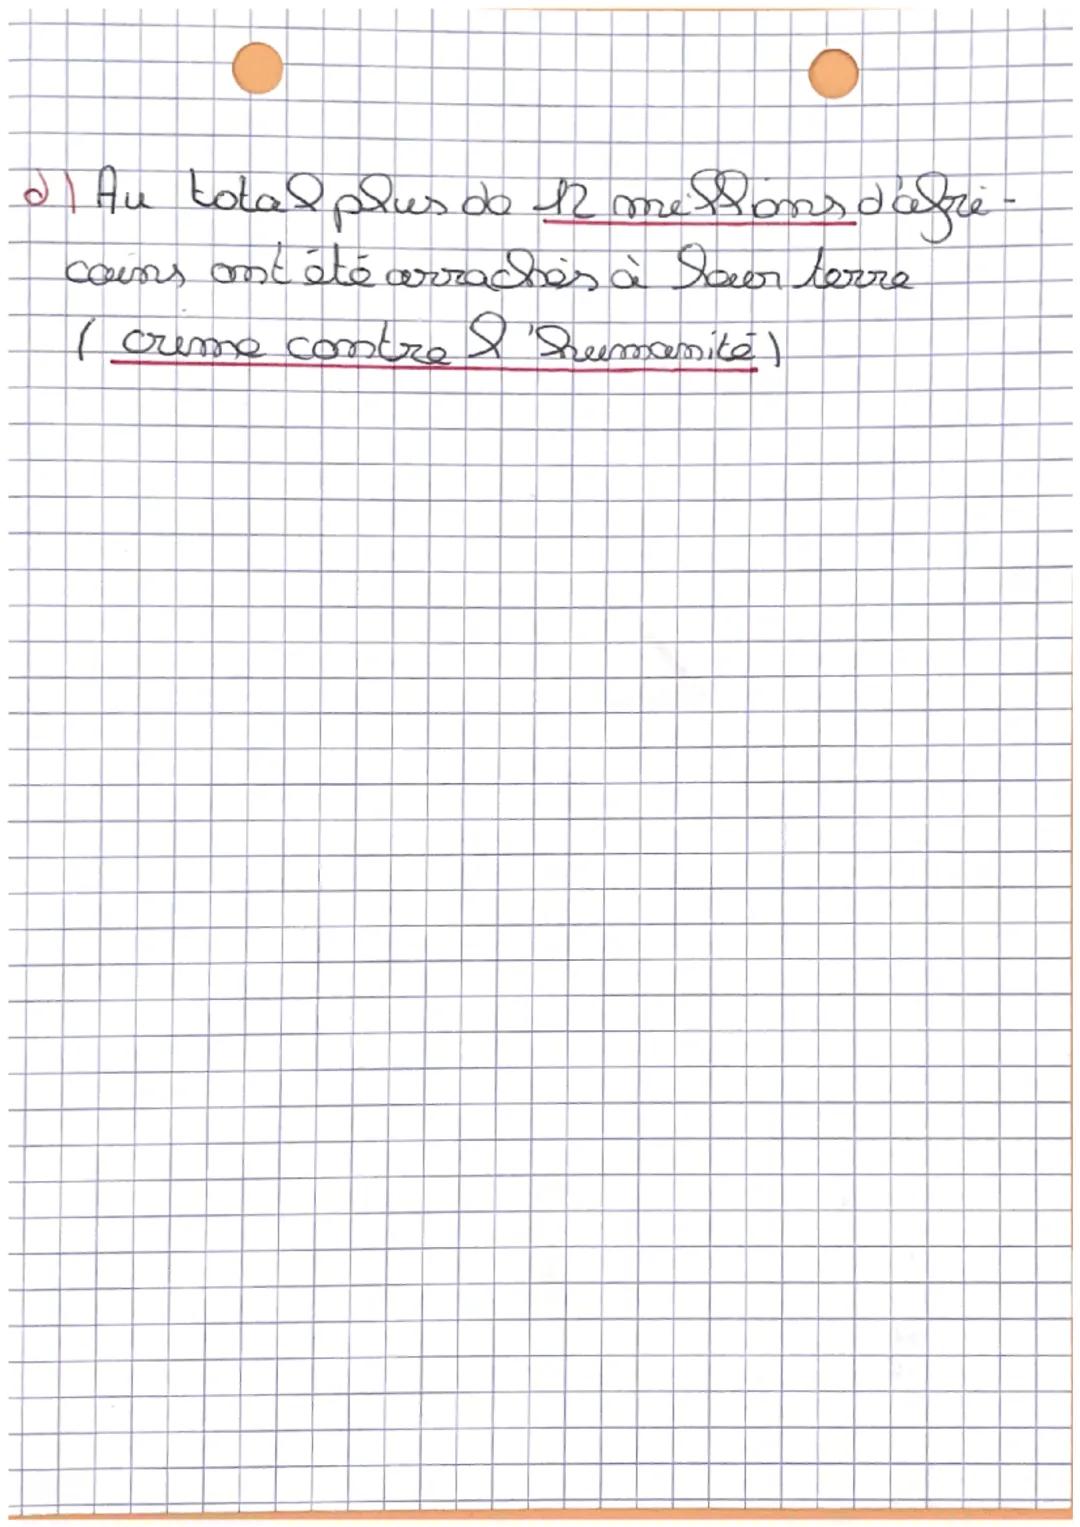 d) Au total plus de 12 millions d'afri-
cains ont été arrachés à leur terre
(crime contre l'humanité)